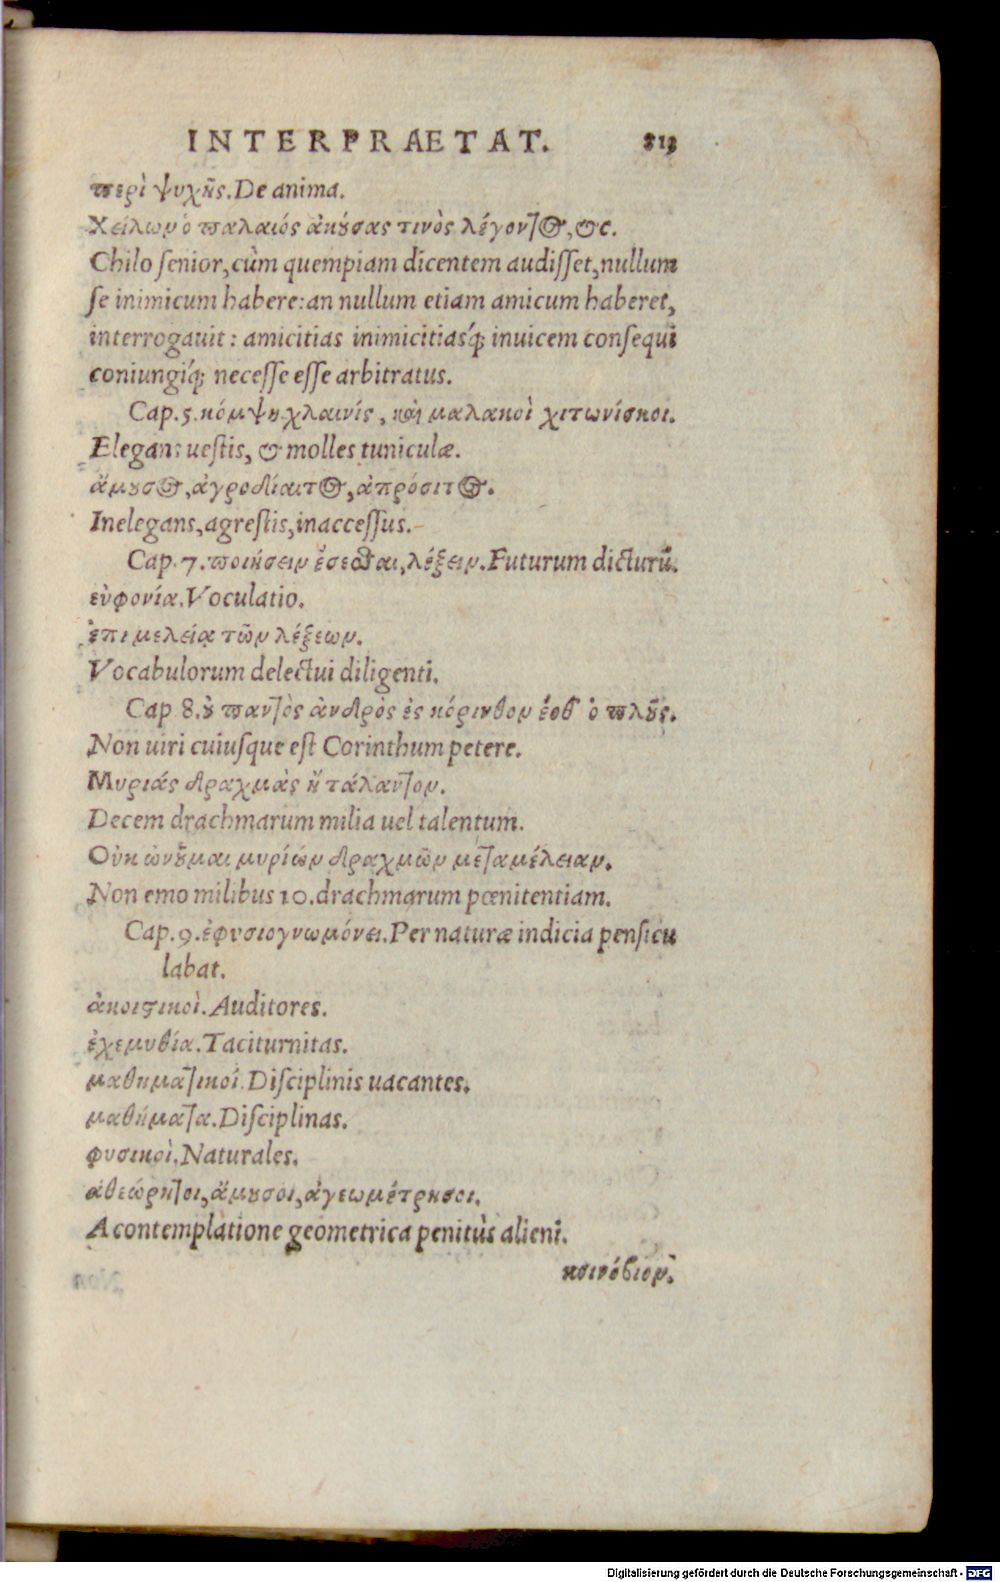 INTERPRAETAT. 813
περὶ ψυχῆς. De anima.
Χείλων ὁ παλαιός ἀκούσας τινὸς λέγοντος, &c.
Chilo ſenior, cùm quempiam dicentem audiſſet, nullum
ſe inimicum habere: an nullum etiam amicum haberet,
interrogauit: amicitias inimicitiasq́; inuicem conſequi
coniungiq́; neceſſe eſſe arbitratus.
Cap. 5. κόμψη χλαινίς, καὶ μαλακοὶ χιτωνίσκοι.
Elegans ueſtis, & molles tuniculæ.
ἄμουσος, ἀγροδίαιτος, ἀπρόσιτος.
Inelegans, agreſtis, inacceſſus.
Cap. 7. ποιήσειν ἔσεσθαι, λέξειν. Futurum dicturū.
εὐφονία. Voculatio.
ἐπιμελείᾳ τῶν λέξεων.
Vocabulorum delectui diligenti.
Cap 8. οὐ παντὸς ἀνδρὸς ἐς κόρινθον ἔσθ' ὁ πλοῦς.
Non uiri cuiuſque eſt Corinthum petere.
Μυριάς δραχμὰς ἢ τάλαντον.
Decem drachmarum milia uel talentum.
Οὐκ ὠνοῦμαι μυρίων δραχμῶν μεταμέλειαν.
Non emo milibus 10. drachmarum pœnitentiam.
Cap. 9. ἐφυσιογνωμόνει. Per naturæ indicia penſicu
labat.
ἀκοιστικοὶ. Auditores.
ἐχεμυθία. Taciturnitas.
μαθηματικοί. Diſciplinis uacantes.
μαθήματα. Diſciplinas.
φυσικοὶ. Naturales.
ἀθεώρητοι, ἄμουσοι, ἀγεωμέτρησοι.
A contemplatione geometrica penitùs alieni.
κοινόβιον.
Digitalisierung gefördert durch die Deutsche Forschungsgemeinschaft - DFG